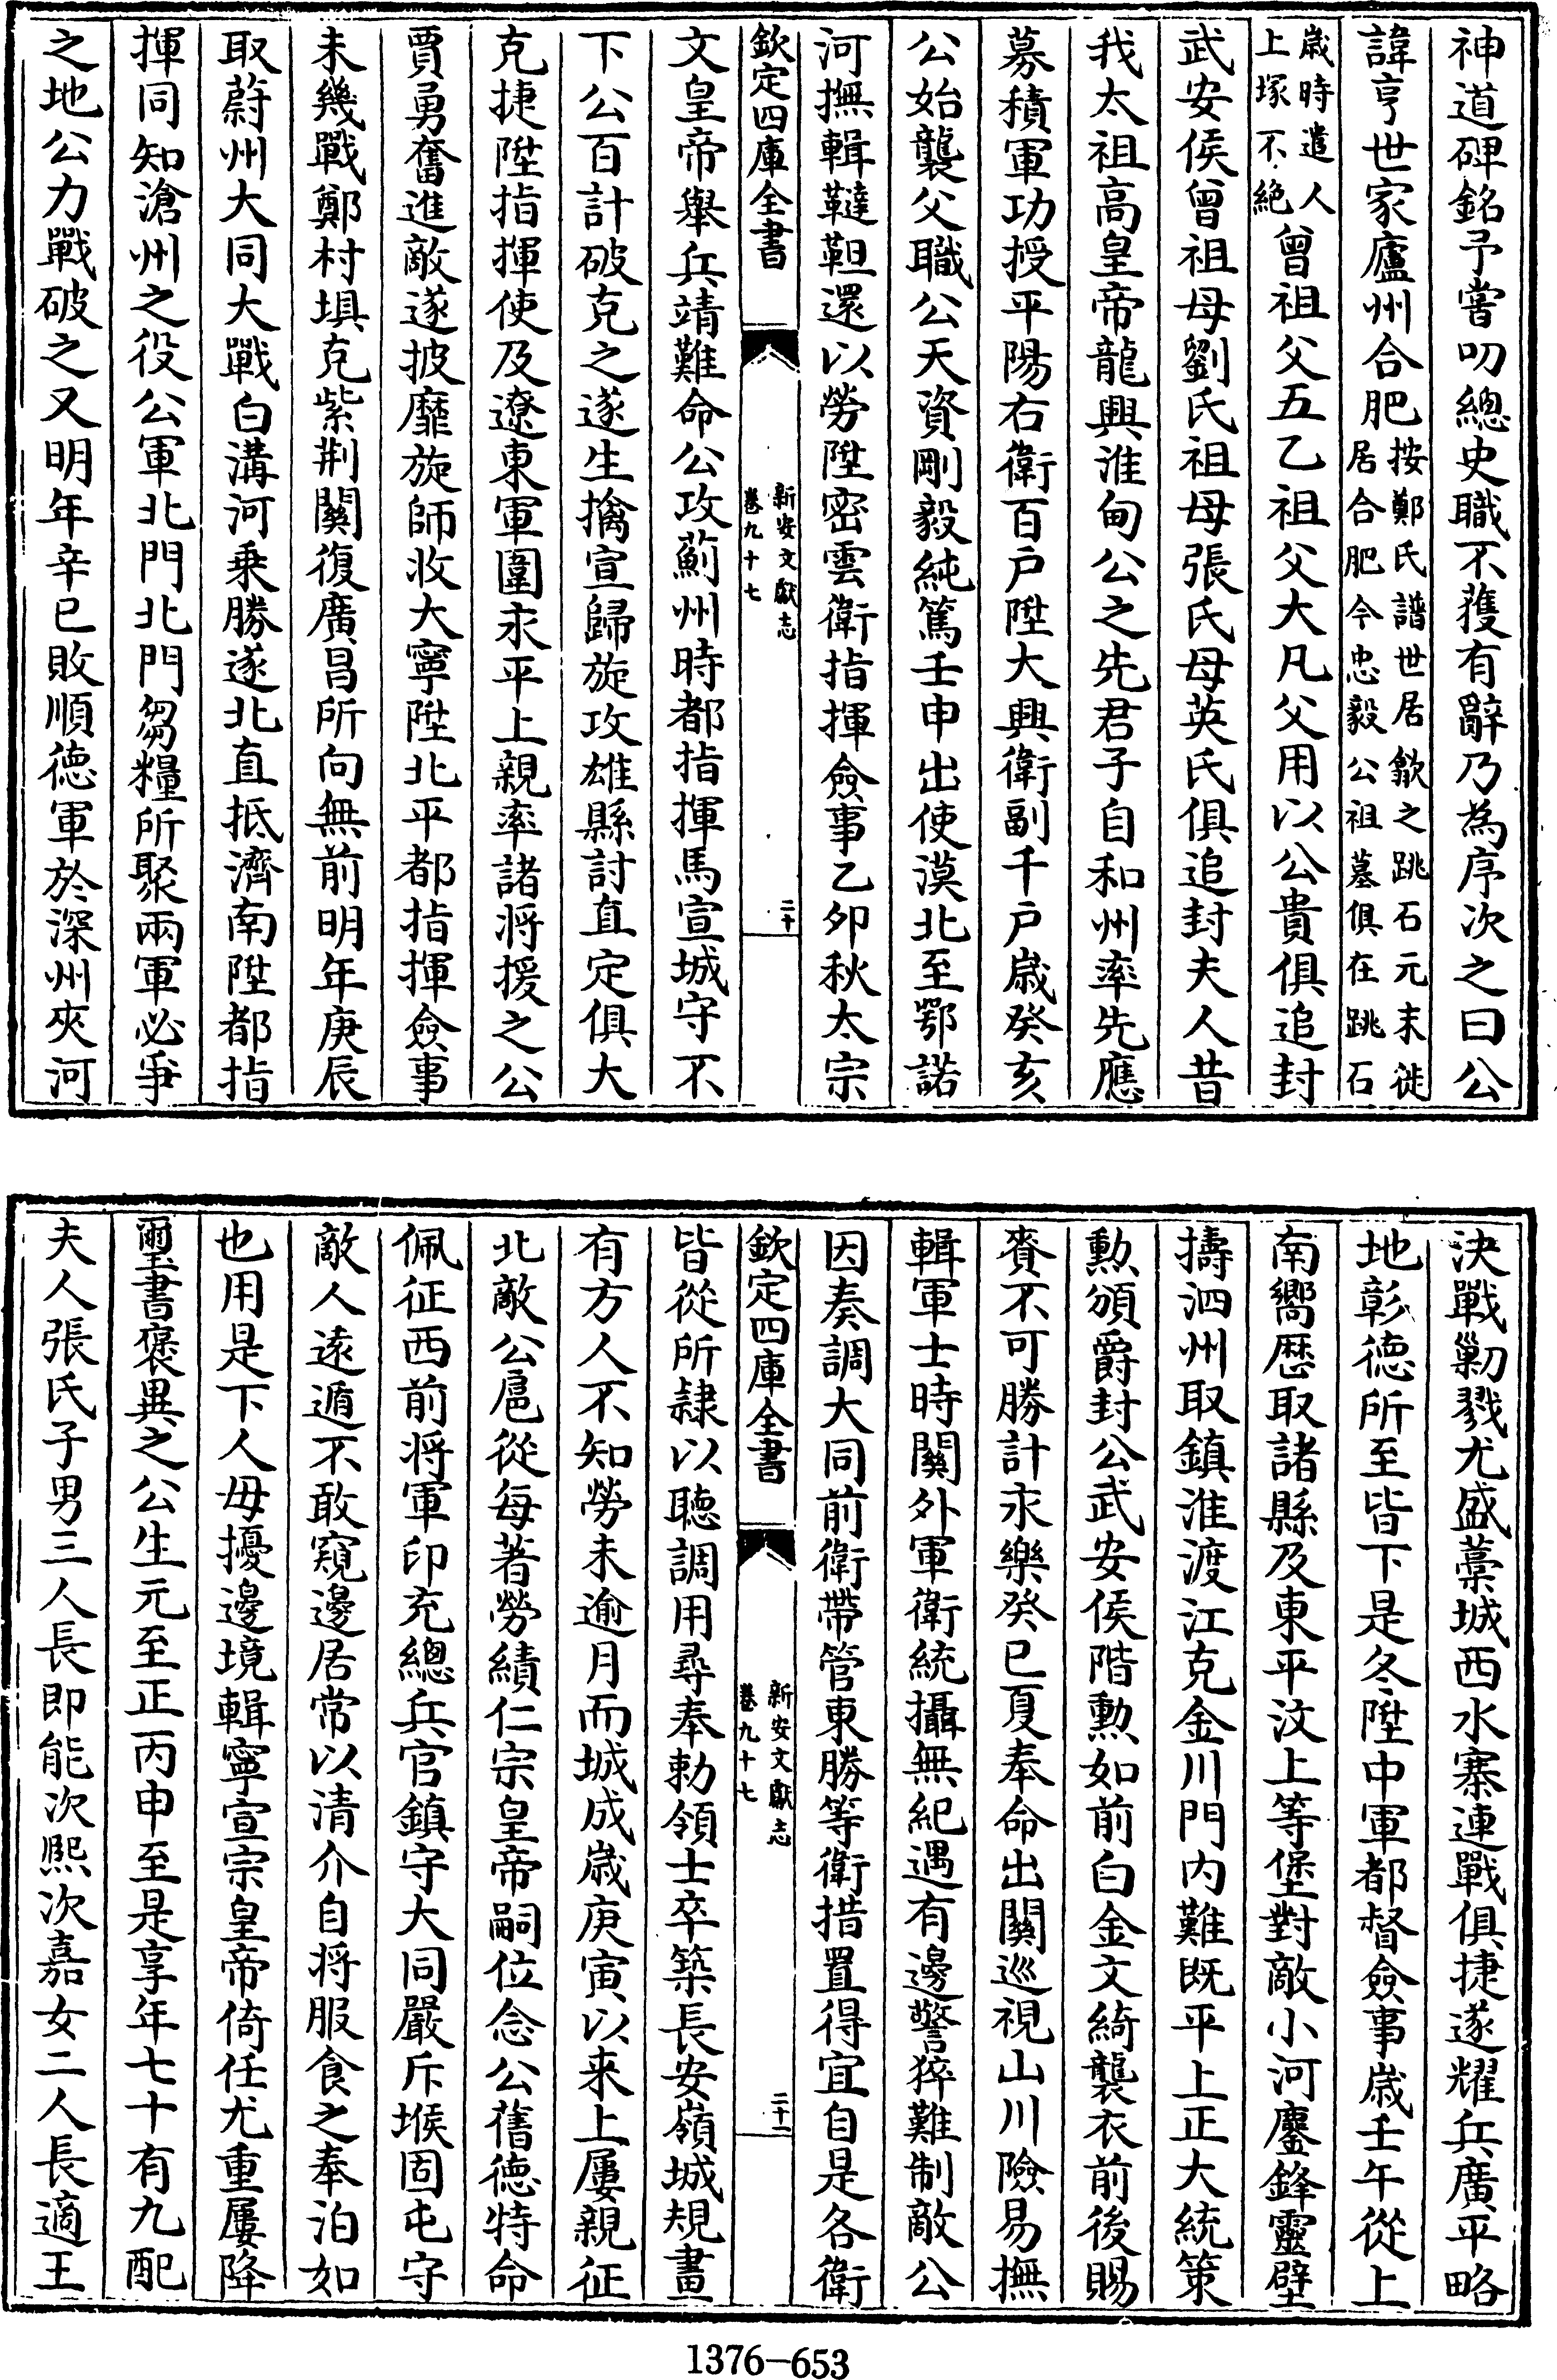 神道碑銘予嘗叨總史職不獲有辭乃為序次之曰公
諱亨世家廬州合肥按鄭氏譜世居歙之跳石元末徙居合肥今忠毅公祖墓俱在跳石
歳時遣人上塚不絶曾祖父五乙祖父大凡父用以公貴俱追封
武安侯曾祖母劉氏祖母張氏母英氏俱追封夫人昔
我太祖高皇帝龍興淮甸公之先君子自和州率先應
募積軍功授平陽右衛百户陞大興衛副千户歳癸亥
公始襲父職公天資剛毅純篤壬申出使漠北至鄂諾
河撫輯韃靼還以勞陞密雲衛指揮僉事乙卯秋太宗
欽定四庫全書
新安文獻志
卷九十七
二十
文皇帝舉兵靖難命公攻薊州時都指揮馬宣城守不
下公百計破克之遂生擒宣歸旋攻雄縣討直定俱大
克捷陞指揮使及遼東軍圍永平上親率諸将援之公
賈勇奮進敵遂披靡旋師收大寧陞北平都指揮僉事
未幾戰鄭村埧克紫荆關復廣昌所向無前明年庚辰
取蔚州大同大戰白溝河乗勝遂北直抵濟南陞都指
揮同知滄州之役公軍北門北門芻糧所聚兩軍必爭
之地公力戰破之又明年辛已敗順徳軍於深州夾河
决戰勦戮尤盛藁城西水寨連戰俱捷遂耀兵廣平略
地彰徳所至皆下是冬陞中軍都督僉事歳壬午從上
南嚮歴取諸縣及東平汶上等堡對敵小河鏖鋒靈壁
擣泗州取鎮淮渡江克金川門内難既平上正大統策
勲頒爵封公武安侯階勲如前白金文綺襲衣前後賜
賚不可勝計永樂癸巳夏奉命出關巡視山川險易撫
輯軍士時關外軍衛統攝無紀遇有邊警猝難制敵公
因奏調大同前衛帶管東勝等衛措置得宜自是各衛
欽定四庫全書
新安文獻志
卷九十七
二十一
皆從所隷以聽調用尋奉勅領士卒築長安嶺城規畫
有方人不知勞未逾月而城成歳庚寅以来上屢親征
北敵公扈從每著勞績仁宗皇帝嗣位念公舊徳特命
佩征西前将軍印充總兵官鎮守大同嚴斥堠固屯守
敵人逺遁不敢窺邊居常以清介自将服食之奉泊如
也用是下人毋擾邊境輯寧宣宗皇帝倚任尤重屢降
璽書褒異之公生元至正丙申至是享年七十有九配
夫人張氏子男三人長即能次熙次嘉女二人長適王
1376-653